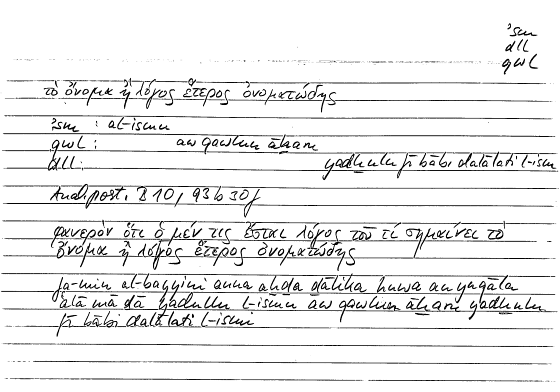 ʾsm
dll
qwl
τὸ ὄνομα ἢ λόγος ἕτερος ὀνοματώδης
ʾsm : al-ismu
qwl : aw qawlun āḫaru
dll : yadḫulu fī bābi dalālati l-ismi
Anal. post. B 10, 93 b 30 f
φανερὸν ὅτι ὁ μέν τις ἔσται λόγος τοῦ τί σημαίνει τὸ
ὄνομα ἢ λόγος ἕτερος ὀνοματώδης
fa-min al-bayyini anna aḥda ḏālika huwa an yuqāla
ʿalā mā ḏā yadullu l-ismu aw qawlun āḫaru yadḫulu
fī bābi dalālati l-ismi